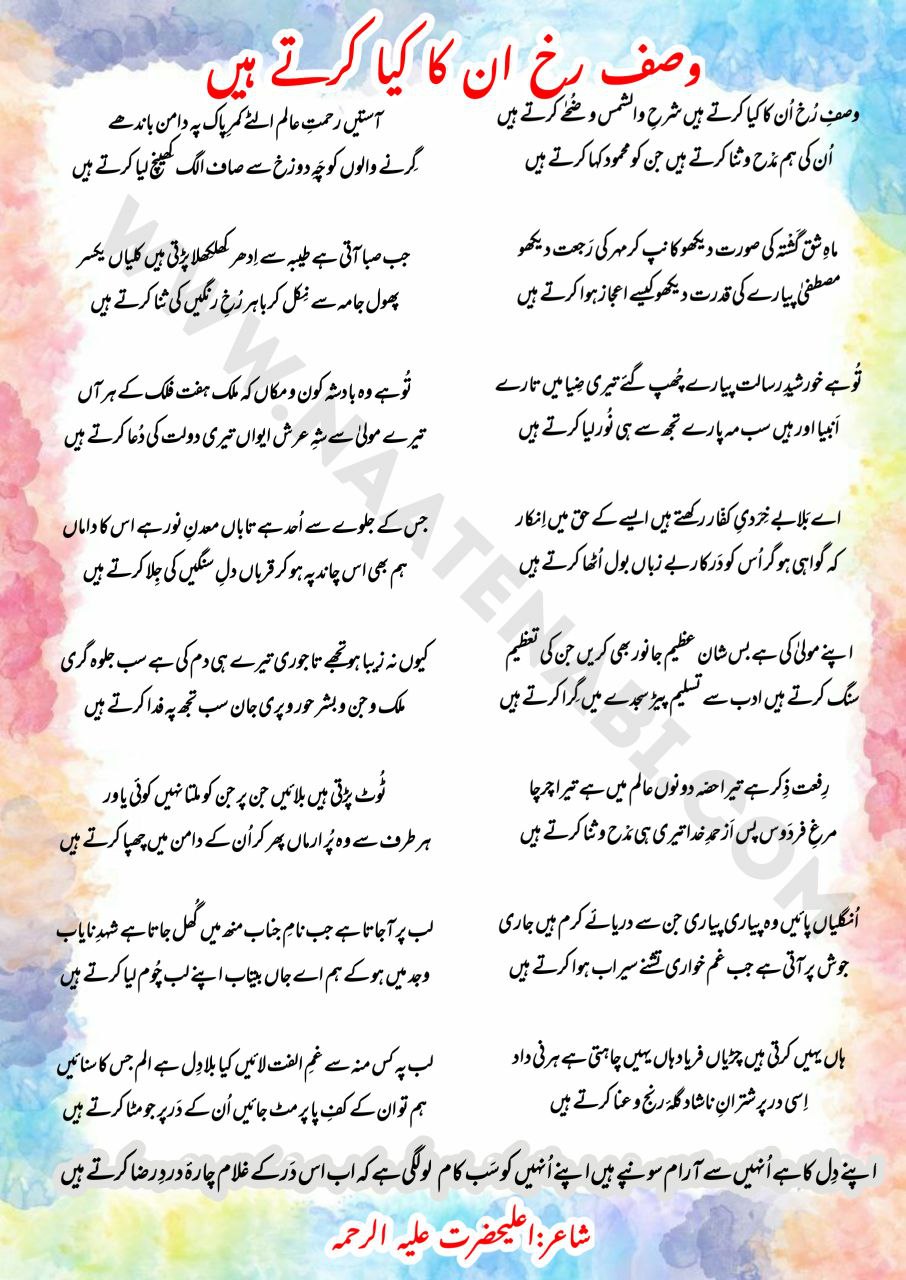 وصف رخ ان کا کیا کرتے ہیں
وصفِ رُخ اُن کا کیا کرتے ہیں شرحِ والشمس وضُحٰے کرتے ہیں
اُن کی ہم مَدْح وثنا کرتے ہیں جن کو محمود کہا کرتے ہیں
ماہِ شق گشتہ کی صورت دیکھو کانپ کر مہر کی رَجعت دیکھو
مصطفیٰ پیارے کی قدرت دیکھو کیسے اعجاز ہوا کرتے ہیں
تُو ہے خورشیدِ رسالت پیارے چُھپ گئے تیری ضِیا میں تارے
اَنبیا اور ہیں سب مہ پارے تجھ سے ہی نُور لیا کرتے ہیں
اے بَلا بے خِرَدیِ کفّار رکھتے ہیں ایسے کے حق میں اِنکار
کہ گواہی ہو گر اُس کو دَرکار بے زباں بول اُٹھا کرتے ہیں
اپنے مولیٰ کی ہے بس شان عظیم جانور بھی کریں جن کی تعظیم
سنگ کرتے ہیں ادب سے تسلیم پیڑ سجدے میں گِرا کرتے ہیں
رِفعت ذِکر ہے تیرا حصّہ دونوں عالم میں ہے تیرا چرچا
مرغِ فردَوس پس اَز حمدِ خدا تیری ہی مَدْح وثنا کرتے ہیں
اُنگلیاں پائیں وہ پیاری پیاری جن سے دریائے کرم ہیں جاری
جوش پر آتی ہے جب غم خواری تشنے سیراب ہوا کرتے ہیں
ہاں یہیں کرتی ہیں چڑیاں فریاد ہاں یہیں چاہتی ہے ہرنی داد
اِسی در پر شترانِ ناشاد گلۂ رنج و عنا کرتے ہیں
آستیں رحمتِ عالم الٹے کمرِ پاک پہ دامن باندھے
گِرنے والوں کو چَہِ دوزخ سے صاف الگ کھینچ لیا کرتے ہیں
جب صبا آتی ہے طیبہ سے اِدھر کھلکھلا پڑتی ہیں کلیاں یکسر
پھول جامہ سے نِکل کر باہر رُخِ رنگیں کی ثنا کرتے ہیں
تُو ہے وہ بادشہِ کون و مکاں کہ ملک ہفت فلک کے ہر آں
تیرے مولیٰ سے شہِ عرش ایواں تیری دولت کی دُعا کرتے ہیں
جس کے جلوے سے اُحد ہے تاباں معدنِ نور ہے اس کا داماں
ہم بھی اس چاند پہ ہو کر قرباں دلِ سنگیں کی جِلا کرتے ہیں
کیوں نہ زیبا ہو تجھے تاجوری تیرے ہی دم کی ہے سب جلوہ گری
ملک و جن و بشر حور و پری جان سب تجھ پہ فدا کرتے ہیں
ٹُوٹ پڑتی ہیں بلائیں جن پر جن کو ملتا نہیں کوئی یاور
ہر طرف سے وہ پُر ارماں پھر کر اُن کے دامن میں چھپا کرتے ہیں
لب پر آ جاتا ہے جب نامِ جناب منھ میں گُھل جاتا ہے شہدِ نایاب
وجد میں ہو کے ہم اے جاں بیتاب اپنے لب چُوم لیا کرتے ہیں
لب پہ کس منہ سے غمِ الفت لائیں کیا بلا دِل ہے الم جس کا سنائیں
ہم تو ان کے کفِ پا پر مٹ جائیں اُن کے دَر پر جو مٹا کرتے ہیں
اپنے دِل کا ہے اُنہیں سے آرام سونپے ہیں اپنے اُنہیں کو سَب کام لو لگی ہے کہ اب اس دَر کے غلام چارۂ دردِ رضا کرتے ہیں
شاعر:اعلیحضرت علیہ الرحمہ
WWW.NAATENABI.COM